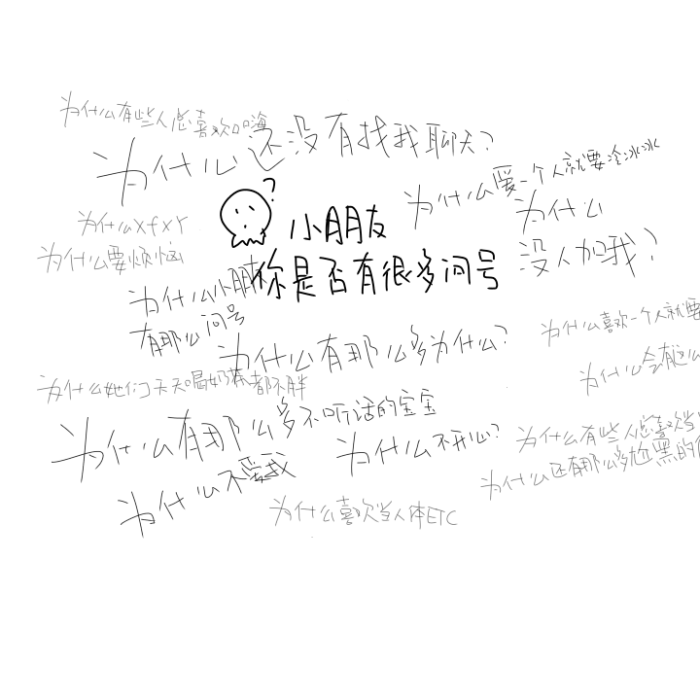 为什么有些人总喜欢口嗨
为什么还没有找我聊天?
为什么爱一个人就要冷冰冰
?
为什么xfxy
小朋友
为什么
没人加我?
为什么要烦恼
你是否有很多问号
为什么小朋
有那么问号
为什么喜欢一个人就要
为什么有那么多为什么?
为什么会有这么
为什么她们天天喝奶茶都不胖
为什么有那么多不听话的宝宝
为什么不开心?
为什么有些人总喜欢当
为什么不爱我
为什么还有那么多尬黑的
为什么喜欢当人体ETC